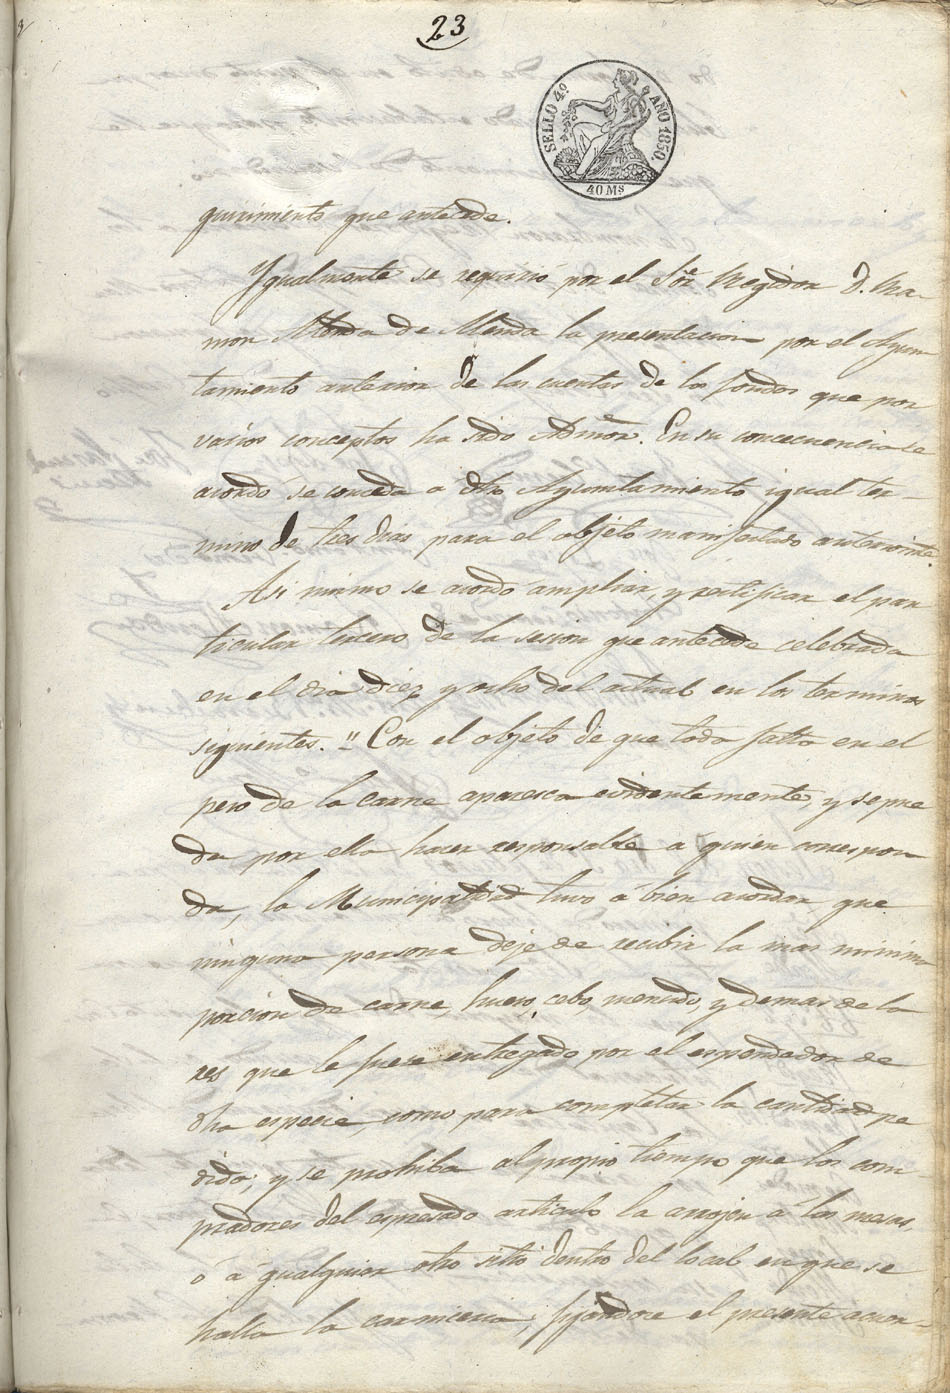 23
SELLO 4º AÑO 1850.
40 Ms
querimiento que antecede.
Ygualmente se requirió por el Sor Regidor D. Ra-
mon de la presentacion por el Ayun
tamiento anterior de las cuentas de los fondos que por
varios conceptos ha sido Admor. En su concecuencia se
acordó se conceda a dho Ayuntamiento igual ter-
mino de tres dias para el objeto manifestado anteriormte.
Asi mismo se acordó ampliar, y rectificar el par
ticular tercero de la sesion que antecede celebrada
en el dia diez y ocho del actual en los terminos
siguientes. " Con el objeto de que toda falta en el
peso de la carne aparesca evidentemente, y se pue
da por ella hacer responsable á quien correspon
da, la Municipalidad tuvo á bien acordar que
ninguna persona deje de recibir la mas minima
porcion de carne, hueso, cebo, menudo, y demas de la
res que le fuese entregado por el espendedor de
dha especie, como para completar la cantidad pe
dida, y se prohiba al propio tiempo que los com
pradores del espresado articulo la arrojen á las mesas,
ó á qualquier otro sitio dentro del local en que se
halla la carniceria, fijandose el presente acuer-